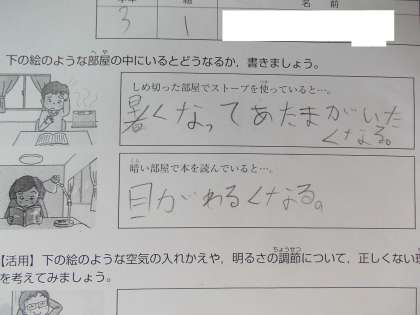 名 前
3 1
下の絵のような部屋の中にいるとどうなるか，書きましょう。
しめ切った部屋でストーブを使っていると…。
暑くなってあたまがいた
くなる。
暗い部屋で本を読んでいると…。
目がわるくなる。
【活用】下の絵のような空気の入れかえや，明るさの調節について，正しくない
を考えてみましょう。